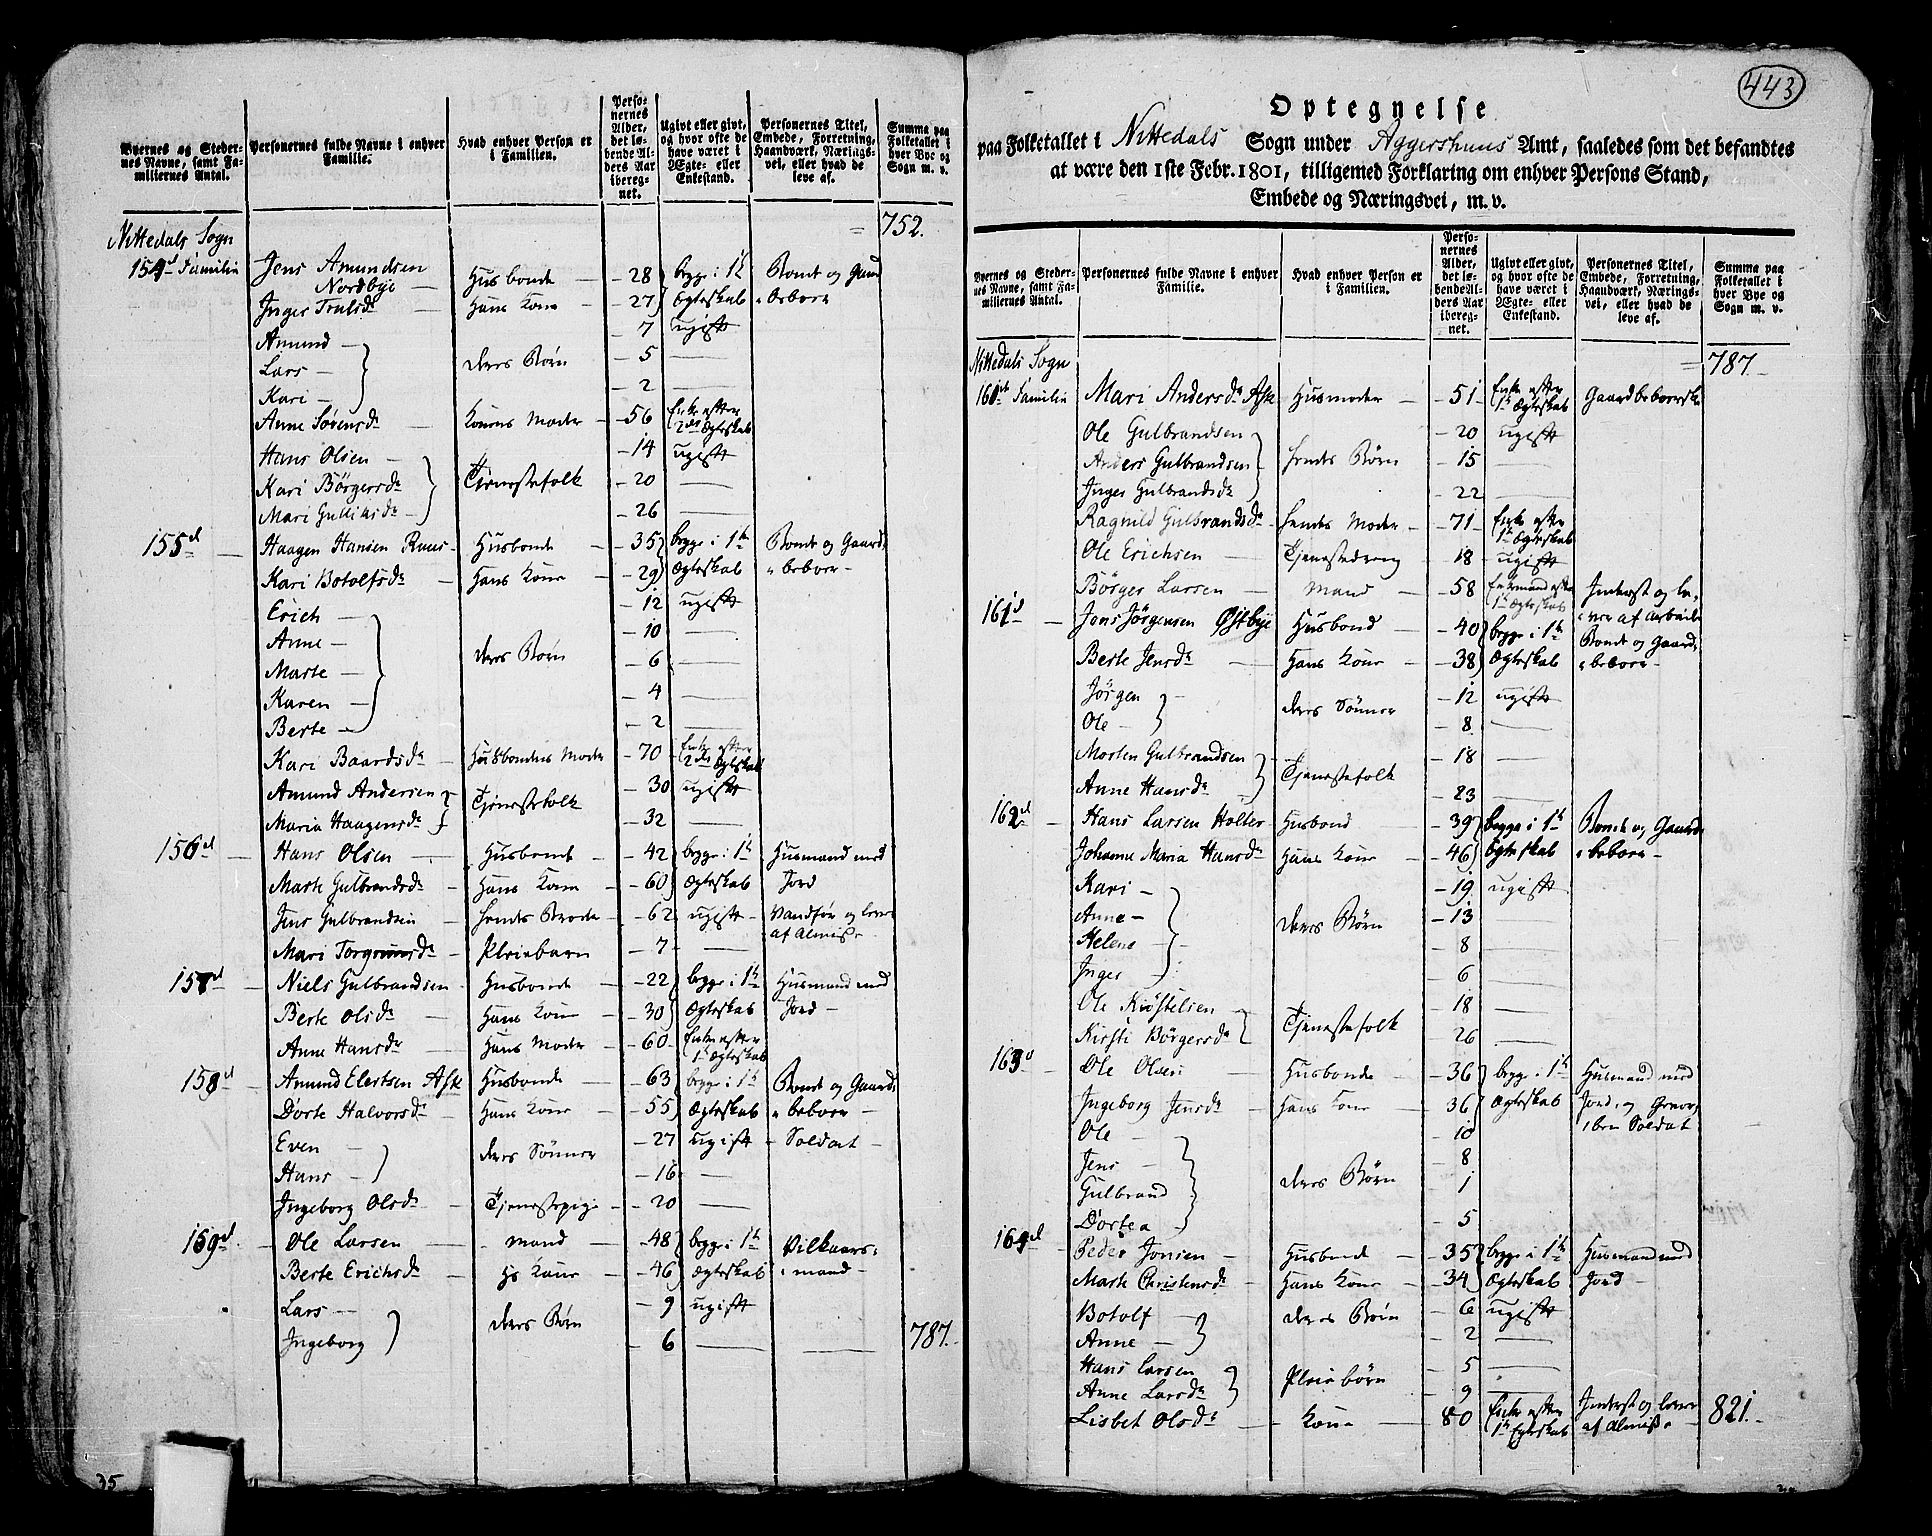 Byernes og Steder-
nes Navne, samt Fa-
miliernes Antal.
Personernes fulde Navne i enhver
Familie.
Hvad enhver Person er
i Familien.
Perso-
nernes
Alder,
det lø-
bende Al-
ders Aar
ibereg-
net.
Ugivt eller givt,
og hvor ofte de
have været i
Ægte- eller
Enkestand.
Personernes Titel,
Embede, Forretning,
Haandværk, Nærings-
vei, eller hvad de
leve af.
Summa paa
Folketallet i
hver Bye og
Sogn m. v.
Nittedals Sogn = 752.
154d Familie Jens Amundsen Nordbye — Husbonde — 28 begge i 1te Bonde og Gaard
Inger Trulsdr — Hans Kone — 27 Ægteskab beboer
Amund — 7 ugift
Lars — deres Børn — 5 —
Kari — 2 —
Anne Sørensdr — Konens Moder — 56 Enke efter 2det Ægteskab
Hans Olsen — 14 ugift
Kari Børgersdr Tjenestefolk — 20 —
Mari Gulliksdr — 26 —
155d — Haagen Hansen Ruus — Husbonde — 35 begge i 1te Bonde og Gaard
Kari Botolfsdr — Hans Kone — 29 Ægteskab beboer —
Erich — 12 ugift
Anne — 10 —
Marte — deres Børn — 6 —
Karen — 4 —
Berte — 2 —
Kari Baardsdr — Husbondens Moder — 70 Enke efter 2det Ægteskab
Amund Andersen Tjenestefolk — 30 ugift
Maria Haagensdr — 32 —
156d — Hans Olsen — Husbonde — 42 begge i 1te Husmand med
Marte Gulbrandsdr — Hans Kone — 60 Ægteskab Jord
Jens Gulbrandsen — hendes Broder — 62 ugift — Vandfør og lever af Almisse
Mari Torgrimsdr — Pleiebarn — 7 —
157d — Niels Gulbrandsen — Husbonde — 22 begge i 1te Husmand med
Berte Olsdr — Hans Kone — 30 Ægteskab Jord —
Anne Hansdr — Hans Moder — 60 Enke efter 1te Ægteskab
158d — Amund Elertsen Ask Husbonde — 63 begge i 1te Bonde og Gaard
Dorte Halvorsdr — Hans Kone — 55 Ægteskab beboer —
Even — deres Sønner — 27 ugift — Soldat —
Hans — 16 —
Ingeborg Olsdr — Tjenestepige — 20 —
159d — Ole Larsen — Mand — 48 begge i 1te Vilkaars-
Berte Erichsdr — Hs Kone — 46 Ægteskab mand —
Lars — deres Børn — 9 ugift
Ingeborg 6 — 787.
35
443
Optegnelse
paa Folketallet i Nittedals Sogn under Aggershuus Amt, saaledes som det befandtes
at være den 1ste Febr. 1801, tilligemed Forklaring om enhver Persons Stand,
Embede og Næringsvei, m. v.
Byernes og Steder-
nes Navne, samt Fa-
miliernes Antal.
Personernes fulde Navne i enhver
Familie.
Hvad enhver Person er
i Familien.
Perso-
nernes
Alder,
det lø-
bende Al-
ders Aar
ibereg-
net.
Ugivt eller givt,
og hvor ofte de
have været i
Ægte- eller
Enkestand.
Personernes Titel,
Embede, Forretning,
Haandværk, Nærings-
vei, eller hvad de
leve af.
Summa paa
Folketallet i
hver Bye og
Sogn m. v.
Nittedals Sogn = 787.
160d Familie Mari Andersdr Ask Husmoder — 51 Enke efter 1te Ægteskab Gaardbeboerske
Ole Gulbrandsen — 20 ugift
Anders Gulbrandsen hendes Børn — 15 —
Inger Gulbrandsdr — 22 —
Ragnild Gulbrandsdr — hendes Moder — 71 Enke efter 1te Ægteskab
Ole Erichsen — Tjenestedreng — 18 ugift
Børger Larsen — Mand — 58 Enkemand efter 1te Ægteskab Inderst og lever af Arbeide
161d — Jens Jørgensen Østbye Husbond — 40 begge i 1te Bonde og Gaard
Berte Jensdr — Hans Kone — 38 Ægteskab beboer —
Jørgen — deres Sønner — 12 ugift
Ole — 8 —
Morten Gulbrandsen Tjenestefolk — 18 —
Anne Hansdr — 23 —
162d — Hans Larsen Holter Husbond — 39 begge i 1te Bonde og Gaard
Johanne Maria Hansdr Hans Kone — 46 Ægteskab beboer —
Kari — 19 ugift
Anne — deres Børn — 13 —
Helene — 8 —
Inger — 6 —
Ole Kristelsen — Tjenestefolk — 18 —
Kirsti Børgersdr — 26 —
163d — Ole Olsen — Husbonde — 36 begge i 1te Husmand med
Ingeborg Jensdr — Hans Kone — 36 Ægteskab Jord og Gevor-
Ole — 10 ben Soldat
Jens — deres Børn — 8
Gulbrand — 1
Dortea — 5
164d — Peder Jonsen — Husbonde — 35 begge i 1te Husmand med
Marte Christensdr — Hans Kone — 34 Ægteskab Jord —
Botolf — deres Børn — 6 ugift
Anne — 2 —
Hans Larsen Pleiebørn — 5 —
Anne Larsdr — 9 —
Lisbet Olsdr — Kone — 80 Enke efter 1te Ægteskab Inderst og lever af Almisse 821.